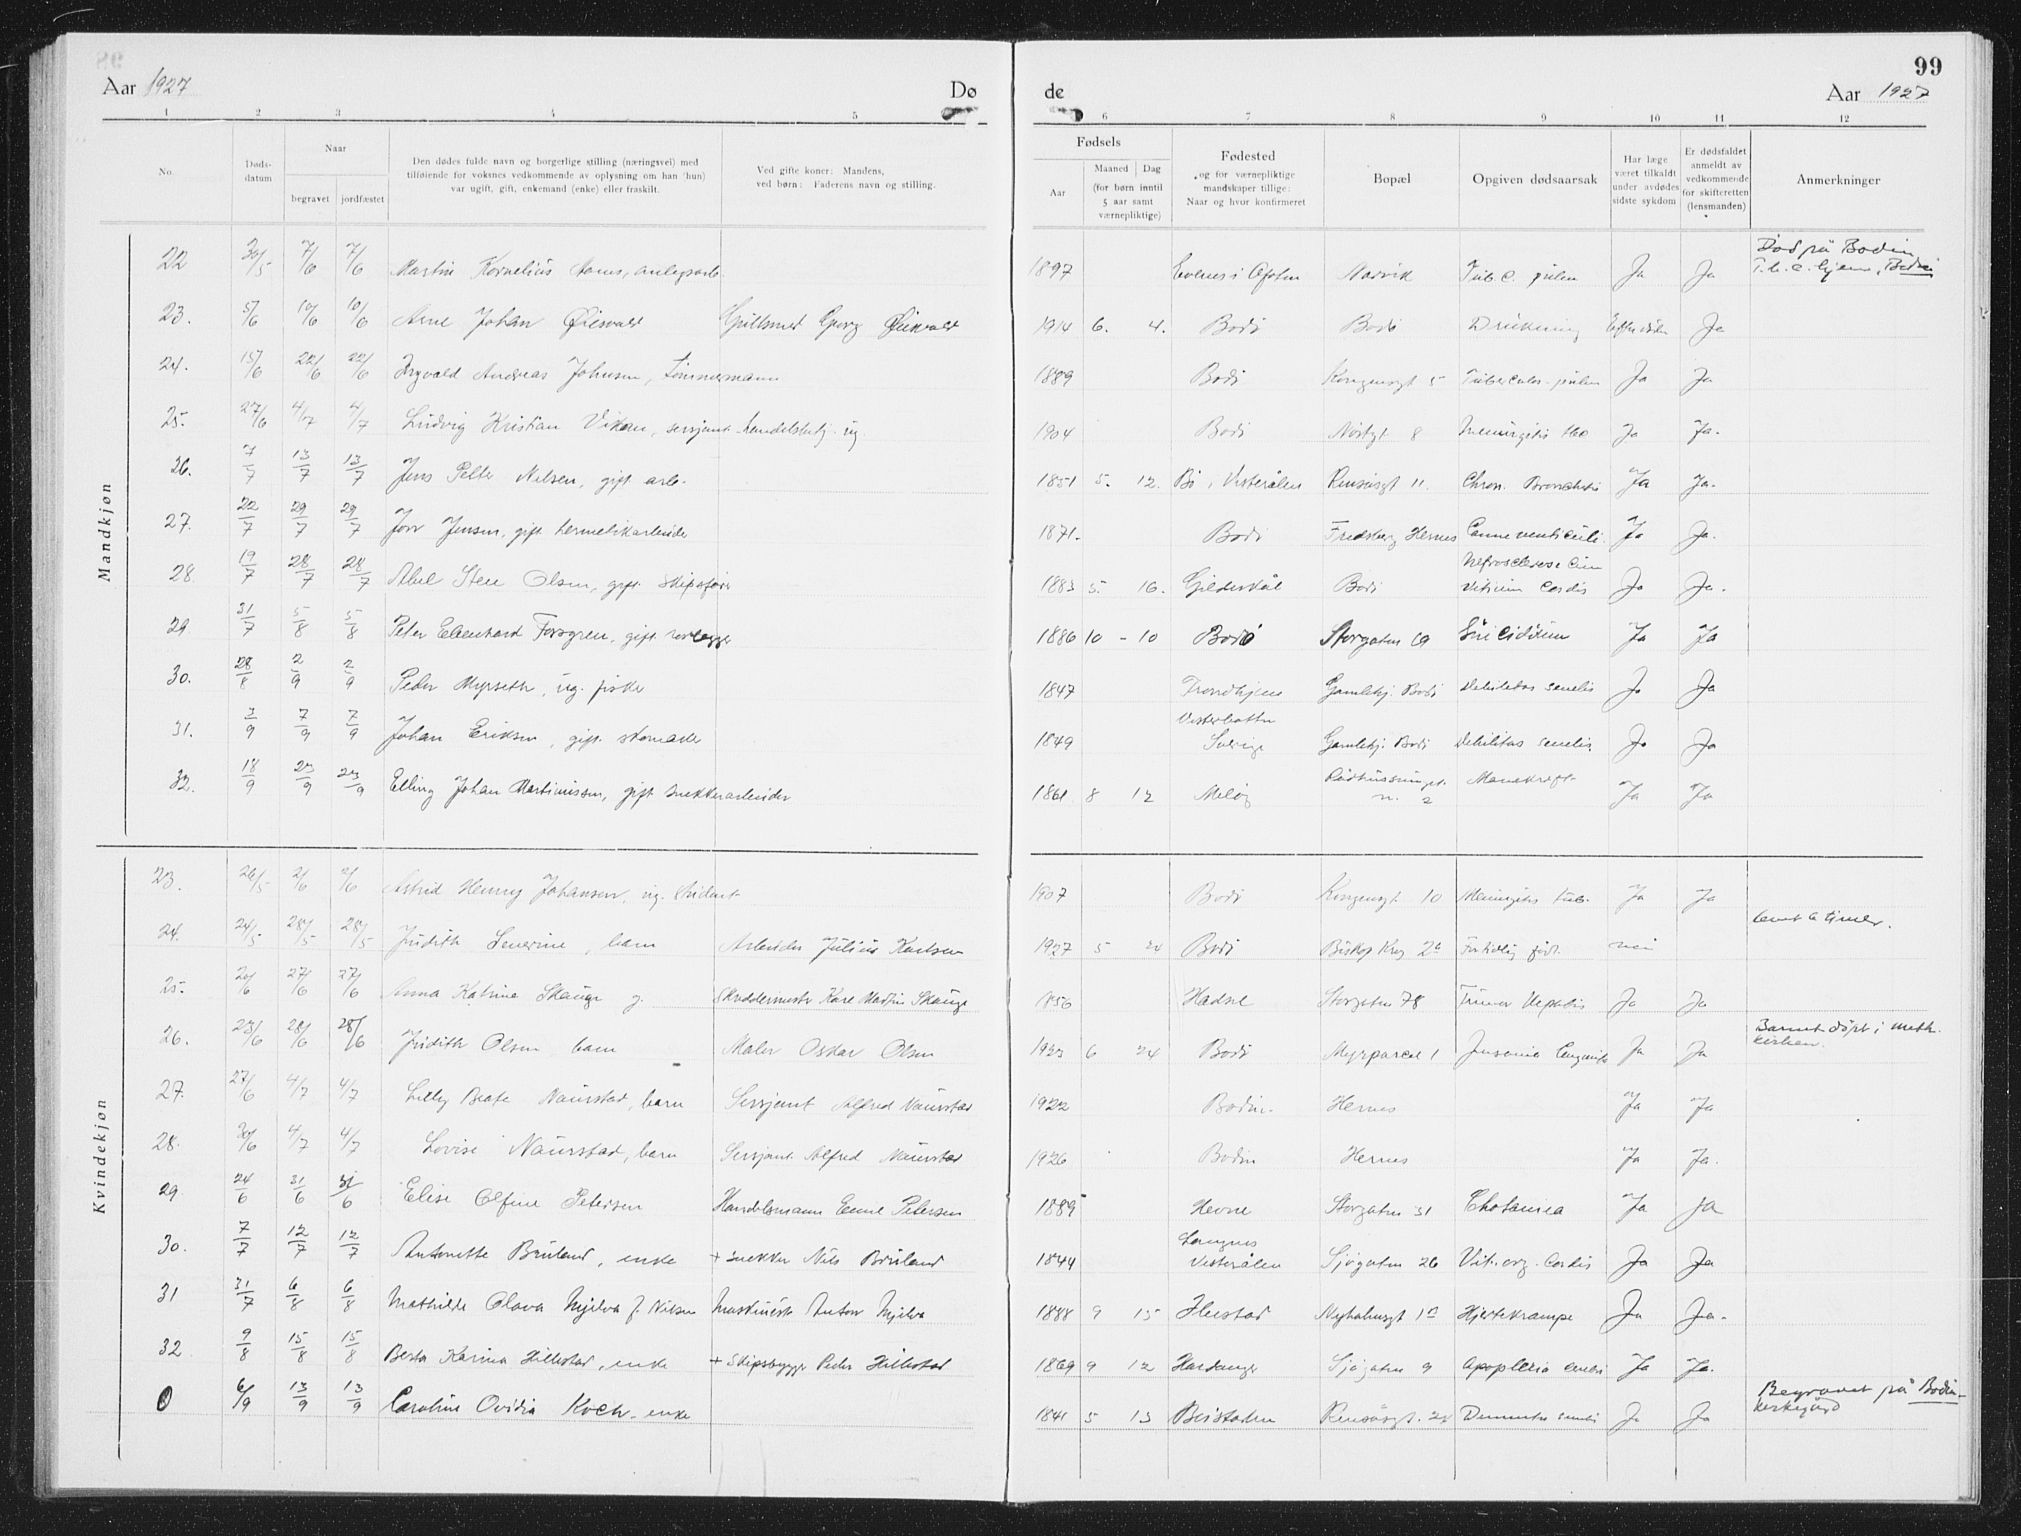 99
Aar 1927 Dø de Aar 1927
1 2 3 4 5 6 7 8 9 10 11 12
No.
Døds-
datum
Naar
begravet jordfæstet
Den dødes fulde navn og borgerlige stilling (næringsvei) med
tilføiende for voksnes vedkommende av oplysning om han (hun)
var ugift, gift, enkemand (enke) eller fraskilt.
Ved gifte koner: Mandens,
ved børn: Faderens navn og stilling.
Fødsels
Aar
Maaned Dag
(for børn inntil
5 aar samt
værnepliktige)
Fødested
og for værnepliktige
mandskaper tillige:
Naar og hvor konfirmeret
Bopæl
Opgiven dødsaarsak
Har læge
været tilkaldt
under avdødes
sidste sykdom
Er dødsfaldet
anmeldt av
vedkommende
for skifteretten
(lensmanden)
Anmerkninger
Mandkjøn
22 30/5 7/6 7/6 Martin Kornelius 1897 Evenes i Ofoten Narvik Tub. C. pulm Ja Ja Død på Bodin T.b.c. hjem, Bodin
23. 5/6 10/6 10/6 Arne Johan Øiesvold Gullsmed Georg Øiesvold 1914 6. 4. Bodø Bodø Drukning Ja
24. 15/6 22/6 22/6 Ingvald Andreas Johnsen, tømmermann 1889 Bodø Kongensgt 5 Tuberculos. pulm Ja Ja
25. 27/6 4/7 4/7 Ludvig Kristian Vikan, sersjant handelsbetj. ug 1904 Bodø 8 Meningitis tbc Ja Ja.
26. 7/7 13/7 13/7 Jens Petter Nilsen, gift arb. 1851 5. 12. Bø i Vesterålen Rensåsgt 11. Chron. Bronchitis Ja Ja.
27. 22/7 29/7 29/7 Jensen, gift hermetikarbeider 1871. Bodø Fredsberg Hernes ventriculi Ja Ja.
28. 19/7 28/7 28/7 Abel Steen Olsen, gift skipsfører 1883 5. 16. Gildeskål Bodø Nefrosclerose cum Vitium Cordis Ja Ja.
29. 31/7 5/8 5/8 Peter Edenhard Forsgren, gift rørlegger 1886 10 - 10 Bodø Storgaten 69 Suicidium Ja Ja
30. 28/8 2/9 2/9 Peder Myrseth, ug. fisker 1847 Trondhjem Gamlehj. Bodø Debilitas senilis Ja Ja
31. 3/9 7/9 7/9 Johan Eriksen, gift skomaker 1849 Vesterbotten Sverige Gamlehj. Bodø Debilitas senilis Ja Ja
32. 18/9 23/9 23/9 Elling Johan Martinussen, gift snekkerarbeider 1861 8 12 Meløy n. 2 Mavekreft Ja Ja
Kvindekjøn
23. 26/5 2/6 2/6 Astrid Henny Johansen, ug. student 1907 Bodø Kongensgt 10 Meningitis tub. Ja Ja
24. 24/5 28/5 28/5 Judith Severine, barn Arbeider Julius Karlsen 1927 5 24 Bodø Biskop Krog 2a Fortidlig født. nei levet 6 timer.
25. 20/6 27/6 27/6 Anna Katrine Skauge g. Skreddermester Karl Martin Skauge 1856 Hadsel Storgaten 78 Tumor Hepatis Ja Ja
26. 23/6 28/6 28/6 Judith Olsen barn Maler Oskar Olsen 6 24 Bodø Myrparcel 1 Ja Ja Barnet døpt i meth. kirken.
27. 27/6 4/7 4/7 Lilly Beate Naurstad, barn Sersjant Alfred Naurstad 1922 Bodin. Hernes Ja Ja
28. 30/6 4/7 4/7 Lovise Naurstad, barn Sersjant Alfred Naurstad 1926 Bodin Hernes Ja Ja.
29. 24/6 31/6 31/6 Elise Olfine Petersen Handelsmann Emil Petersen 1889 Hevne Storgaten 31 Ja Ja
30. 7/7 12/7 12/7 Antonette Bruland, enke + snekker Nils Bruland 1844 Langnes Vesterålen Sjøgaten 26 Vit. org. Cordis Ja Ja
31 31/7 6/8 6/8 Mathilde Olava Mjelva f. Nilsen Maskinist Anton Mjelva 1888 9 15 1a Hjertekrampe Ja Ja.
32 9/8 15/8 15/8 Berta Karina Hillestad, enke + Skipsbygger Peder Hillestad 1869 9 12 Hardanger Sjøgaten 9 Apoplexia Ja Ja.
0 6/9 13/9 13/9 Caroline Ovidia Koch. enke 1841 5 13 Beistaden Rensåsgt. 24 Dementia senilis Ja Ja Begravet på Bodin kirkegård